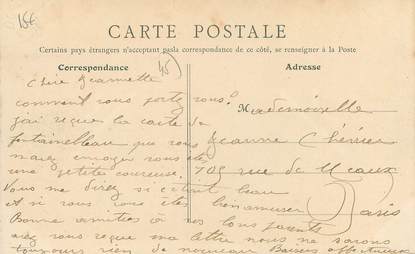 15€
CARTE POSTALE
Certains pays étrangers n'acceptant pas la correspondance de ce côté, se renseigner à la Poste
Correspondance
45)
Adresse
Chère Jeannette
comment vous portez vous?
j'ai reçue la carte de
fontainebleau que vous
mavez envoyer vous êtes
une petites coureuse.
Vous me direz si c'était beau
et si vous vous êtes bien amuser
Bonne amitiées à vos bons parents
avez vous reçue ma lettre nous ne savons
toujours rien de nouveau Baisers affectueux
Mademoiselle
Jeanne
rue de Meaux
Paris